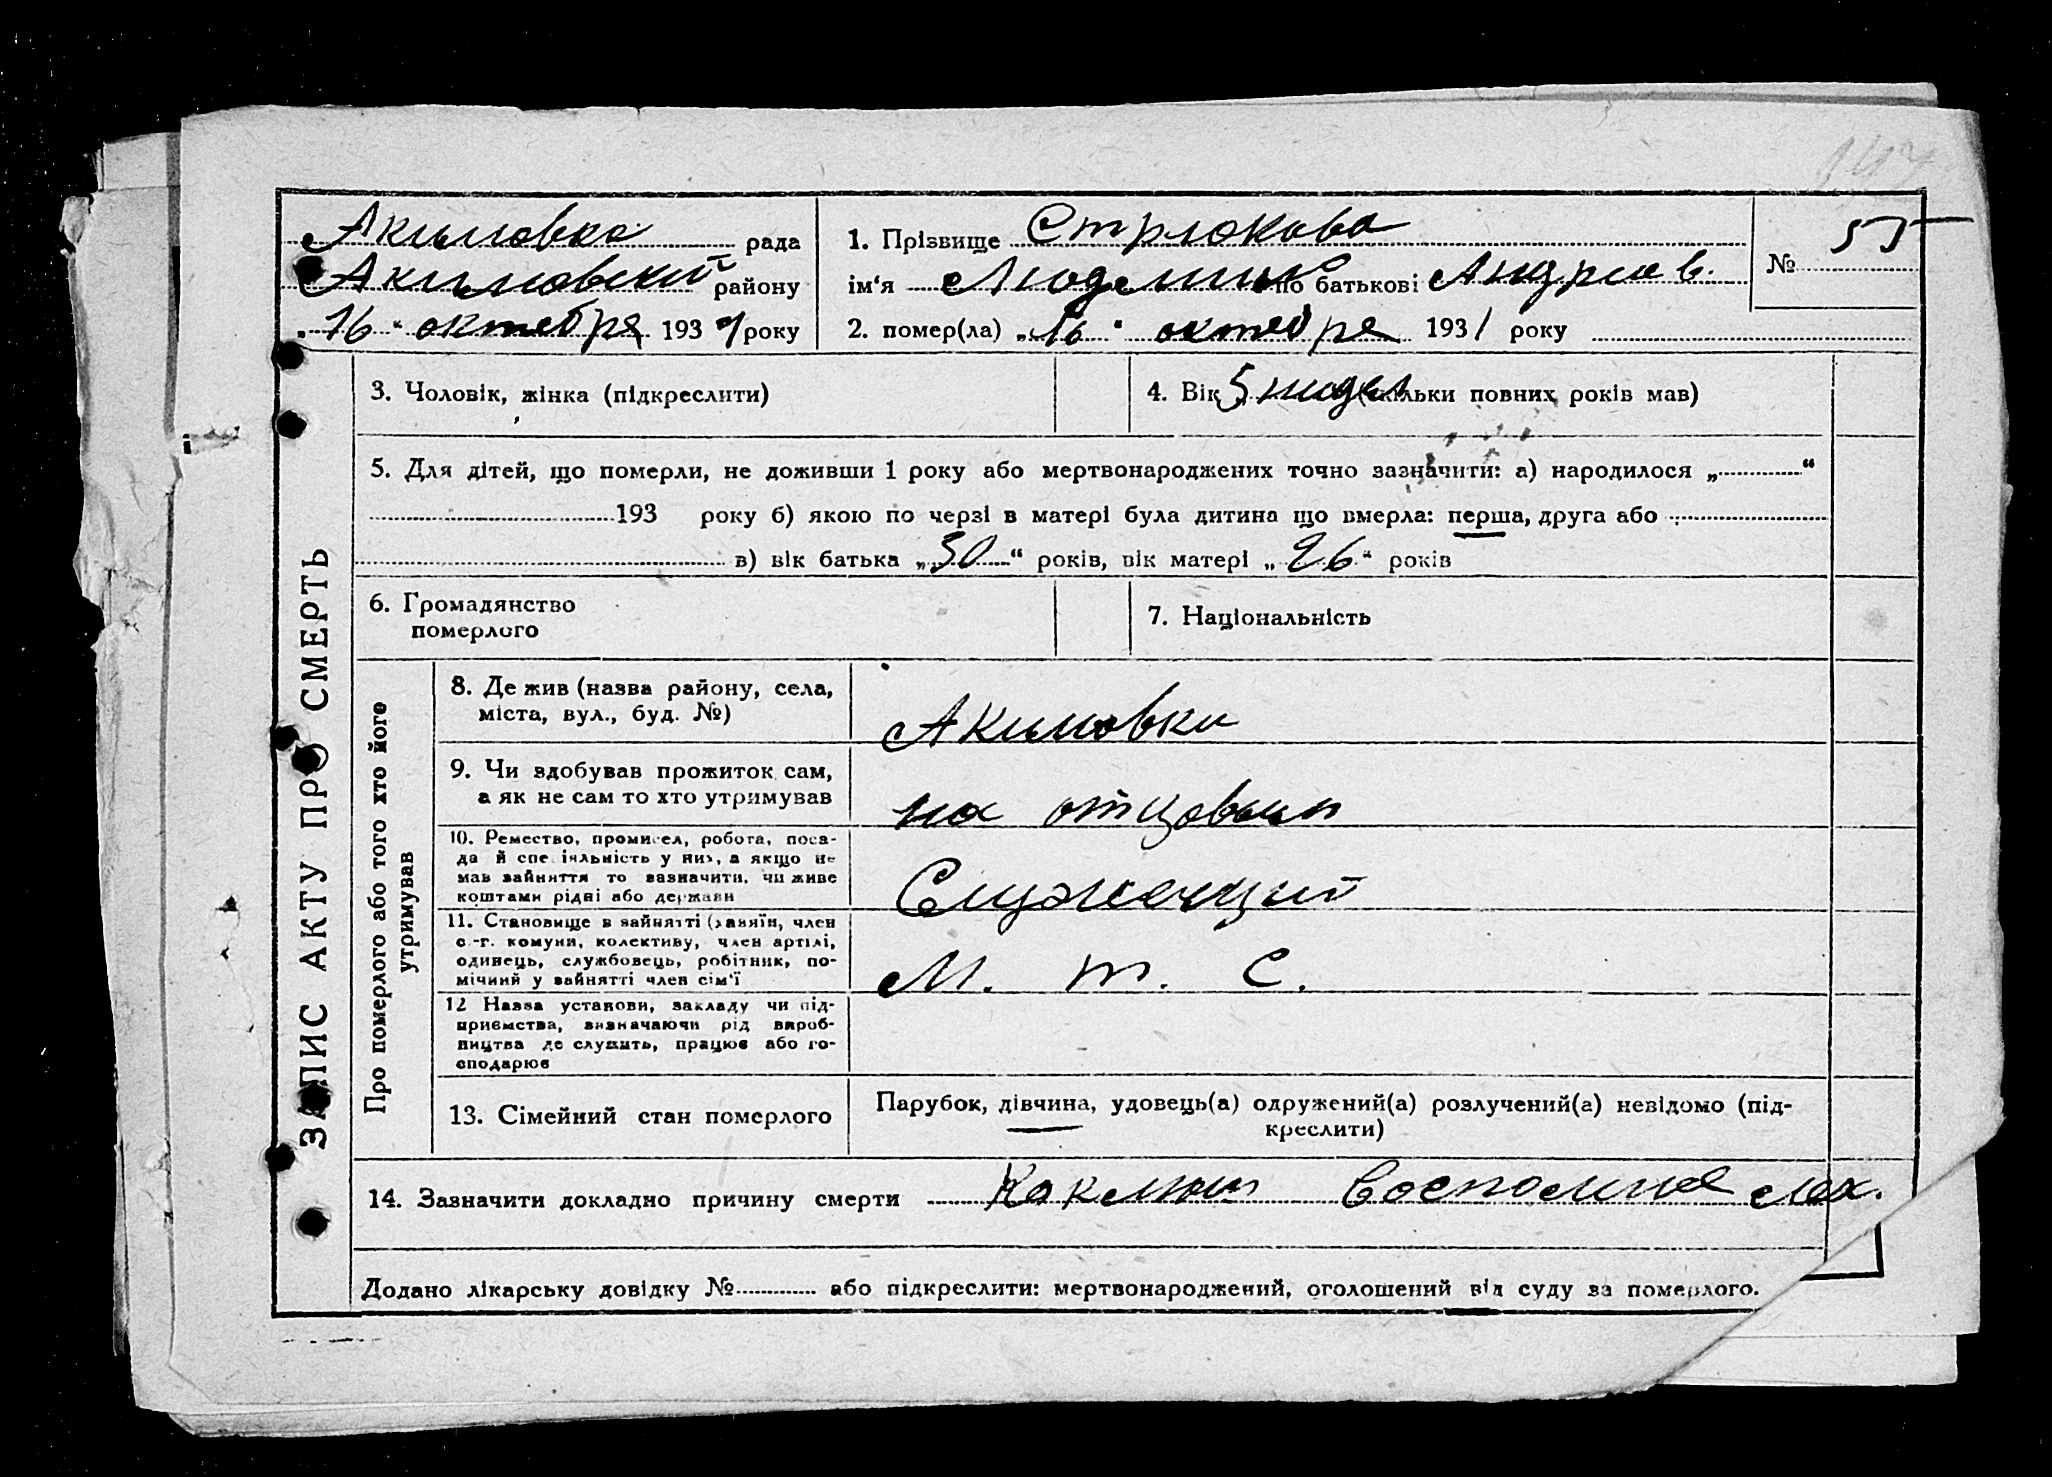 Акимовка рада
Акимовский району
„16“ октебря 1931 року
1. Прізвище Стрюкова
ім'я Людмила по батькові Андриев.
№ 55
2. помер(ла) „16“ октебре 1931 року
ЗАПИС АКТУ ПРО СМЕРТЬ
3. Чоловік, жінка (підкреслити)
4. Вік 5 нидел (скільки повних років мав)
5. Для дітей, що померли, не доживши 1 року або мертвонароджених точно зазначити: а) народилося „ “
193 року б) якою по черзі в матері була дитина що вмерла: перша, друга або
в) вік батька „30“ років, вік матері „26“ років
6. Громадянство
померлого
7. Національність
Про померлого або того хто його
утримував
8. Де жив (назва району, села,
міста, вул., буд. №)
Акимовки
9. Чи здобував прожиток сам,
а як не сам то хто утримував
на отцовым
10. Ремество, промисел, робота, поса-
да й спеціяльність у них, а якщо не
мав зайняття то зазначити, чи живе
коштами рідні або держави
Служащий
11. Становище в зайнятті (хазяїн, член
с.-г. комуни, колективу, член артілі,
одинець, службовець, робітник, по-
мічний у зайнятті член сім'ї
М. т. с.
12 Назва установи, закладу чи під-
приємства, визначаючи рід вироб-
ництва де служить, працює або го-
сподарює
13. Сімейний стан померлого
Парубок, дівчина, удовець(а) одружений(а) розлучений(а) невідомо (під-
креслити)
14. Зазначити докладно причину смерти Коклюш воспоминое лех.
Додано лікарську довідку № або підкреслити: мертвонароджений, оголошений від суду за померлого.